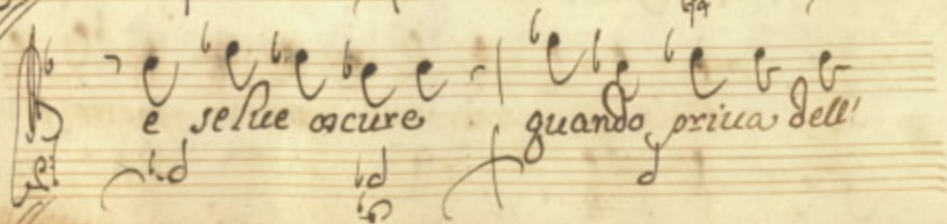 e selue oscure quando priua dell'